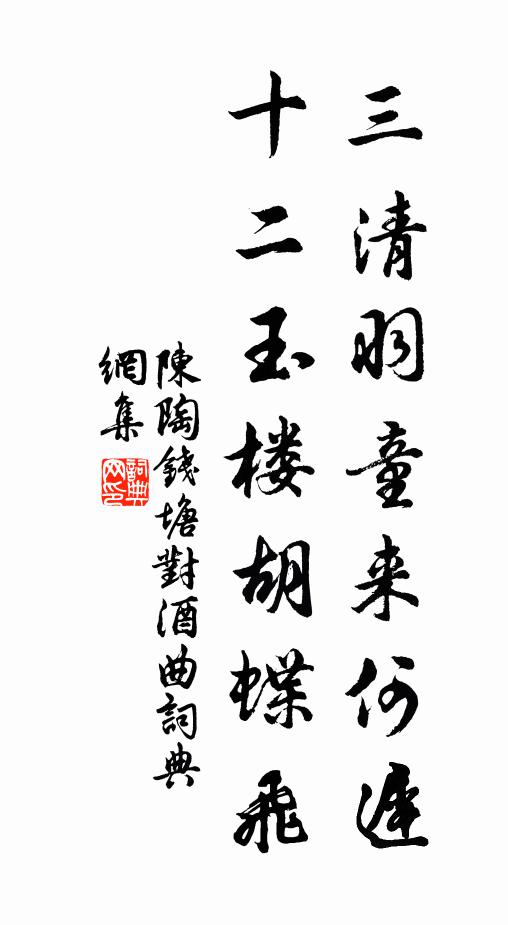 三清羽童来何遲
十二玉楼胡蝶飛
陳陶錢塘對酒曲詞典
網集
詞典
网印